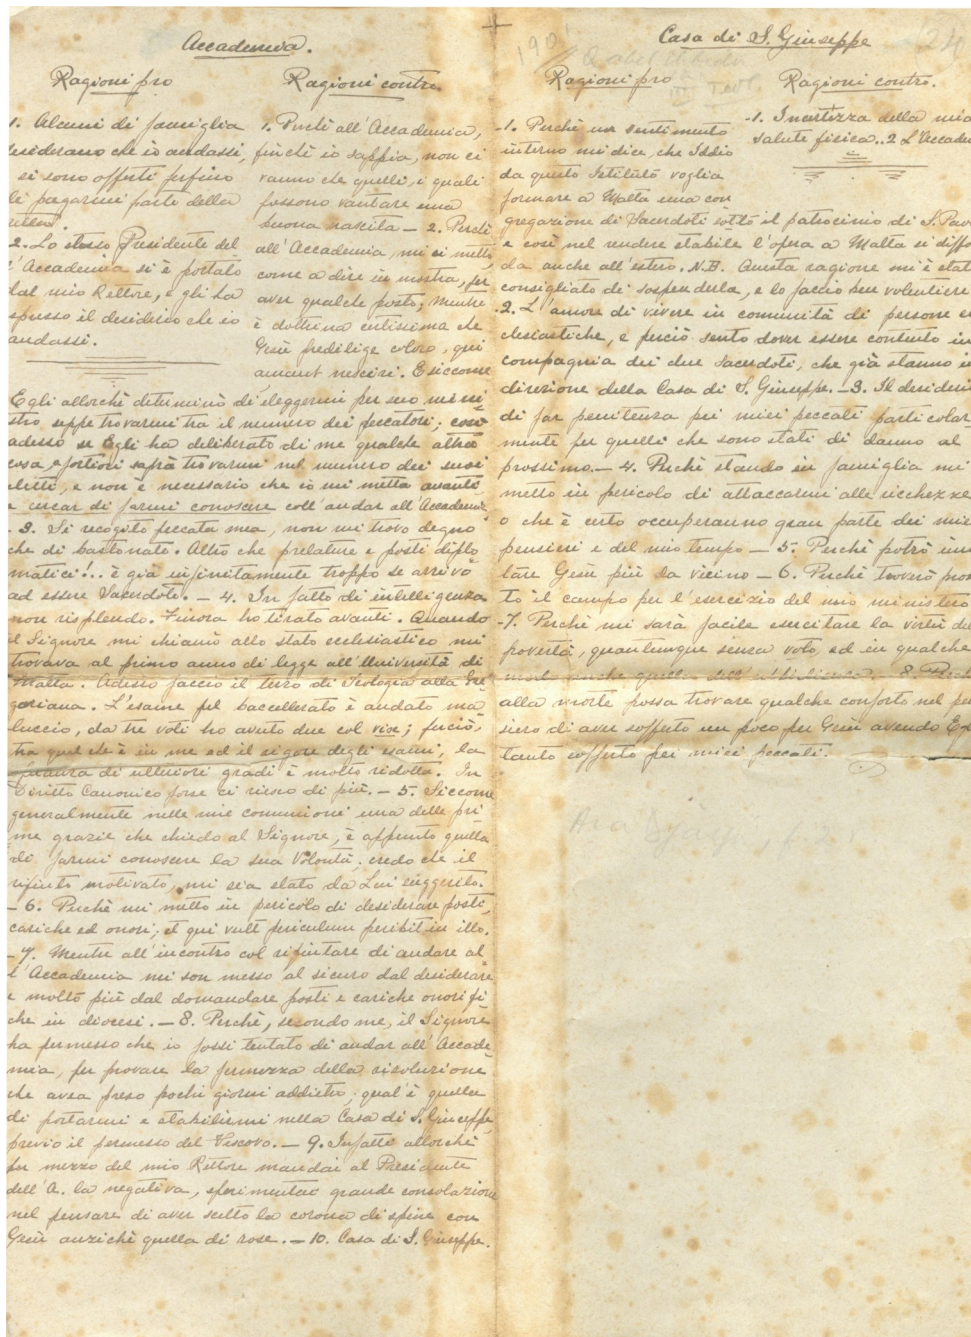 Accademia.
Ragioni pro
1. Alcuni di famiglia
desiderano che io andassi,
si sono offerti perfino
di pagarmi parte della
retta.
2. Lo stesso Presidente del
l'Accademia si è portato
dal mio Rettore, e gli ha
espresso il desiderio che io
andassi.
Ragioni contro
1. Perchè all'Accademia,
finchè io sappia, non ci
vanno che quelli, i quali
possono vantare una
buona nascita – 2. Perchè
all'Accademia, mi si mette,
come a dire in mostra, per
aver qualche posto; mentre
è dottrina certissima che
Gesù predilige coloro, qui
amant nesciri. E siccome
Egli allorchè determinò di eleggermi per suo mini
stro, seppe trovarmi tra il numero dei peccatori; così
adesso se Egli ha deliberato di me qualche altra
cosa, a fortiori saprà trovarmi nel numero dei suoi
eletti, e non è necessario che io mi metta avanti
e cercar di farmi conoscere coll'andar all'Accademia
– 3. Si recogito peccata mea, non mi trovo degno
che di bastonate. Altro che prelature e posti diplo
matici!.. è già infinitamente troppo se arrivo
ad essere Sacerdote. – 4. In fatto di intelligenza
non risplendo. Finora ho tirato avanti. Quando
il Signore mi chiamò allo stato ecclesiastico mi
trovava al primo anno di legge all'Università di
Malta. Adesso faccio il terzo di Teologia alla Gre
goriana. L'esame pel baccellerato è andato ma
luccio, da tre voti ho avuto due col vix; perciò,
tra quel che è in me ed il rigore degli esami, la
speranza di ulteriori gradi è molto ridotta. In
Diritto Canonico forse ci riesco di più. – 5. Siccome
generalmente nelle mie comunioni una delle pri
me grazie che chiedo al Signore, è appunto quella
di farmi conoscere la sua Volontà, credo che il
rifiuto motivato, mi sia stato da Lui suggerito.
– 6. Perchè mi metto in pericolo di desiderare posti,
cariche ed onori; et qui vult periculum peribit in illo.
– 7. Mentre all'incontro col rifiutare di andare al
l'Accademia mi son messo al sicuro dal desiderare
e molto più dal domandare posti e cariche onorifi
che in diocesi. – 8. Perchè, secondo me, il Signore
ha permesso che io fossi tentato di andar all'Accade
mia, per provare la fermezza della risoluzione
che avea preso pochi giorni addietro, qual'è quella
di portarmi e stabilirmi nella Casa di S. Giuseppe,
previo il permesso del Vescovo. – 9. Infatti allorchè
per mezzo del mio Rettore mandai al Presidente
dell'A. la negativa, sperimentai grande consolazione
nel pensare di aver scelto la corona di spine con
Gesù anzichè quella di rose. – 10. Casa di S. Giuseppe.
Casa di S. Giuseppe
1901
(24)
Ragioni pro
-1. Perchè un sentimento
interno mi dice, che Iddio
da questo Istituto voglia
formare a Malta una con
Ragioni contro.
-1. Incertezza della mia
salute fisica.. 2 L'Accade
gregazione di Sacerdoti sotto il patrocinio di S. Pao
e così nel rendere stabile l'opera a Malta si diffo
da anche all'estero. N.B. Questa ragione mi è stat
consigliato di sospenderla, e lo faccio ben volentieri
-2. L'amore di vivere in comunità di persone ec
clesiastiche, e perciò sento dover essere contento in
compagnia dei due Sacerdoti, che già stanno in
direzione della Casa di S. Giuseppe. – 3. Il desideri
di far penitenza pei miei peccati particolar
mente per quelli che sono stati di danno al
prossimo. – 4. Perchè stando in famiglia mi
metto in pericolo di attaccarmi alle ricchezze
o che è certo occuperanno gran parte dei miei
pensieri e del mio tempo – 5. Perchè potrò imi
tare Gesù più da vicino – 6. Perchè troverò pron
to il campo per l'esercizio del mio ministero
-7. Perchè mi sarà facile esercitare la virtù de
povertà, quantunque senza voto, ed in qualche
modo anche quella dell'ubbidienza. – 8. Perch
alla morte possa trovare qualche conforto nel pe
siero di aver sofferto un poco per Gesù avendo Eg
tanto sofferto pei miei peccati.